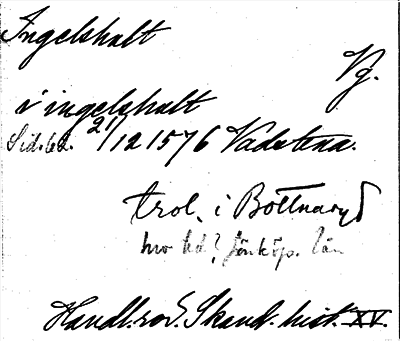 Ingelshalt
Vg.
i ingelshalt
Sid. 62. 21/12 1576 Vadstena.
trol. i Bottnaryd
hd? Jönköp. län
Handl. rör. Skand. hist. XV.